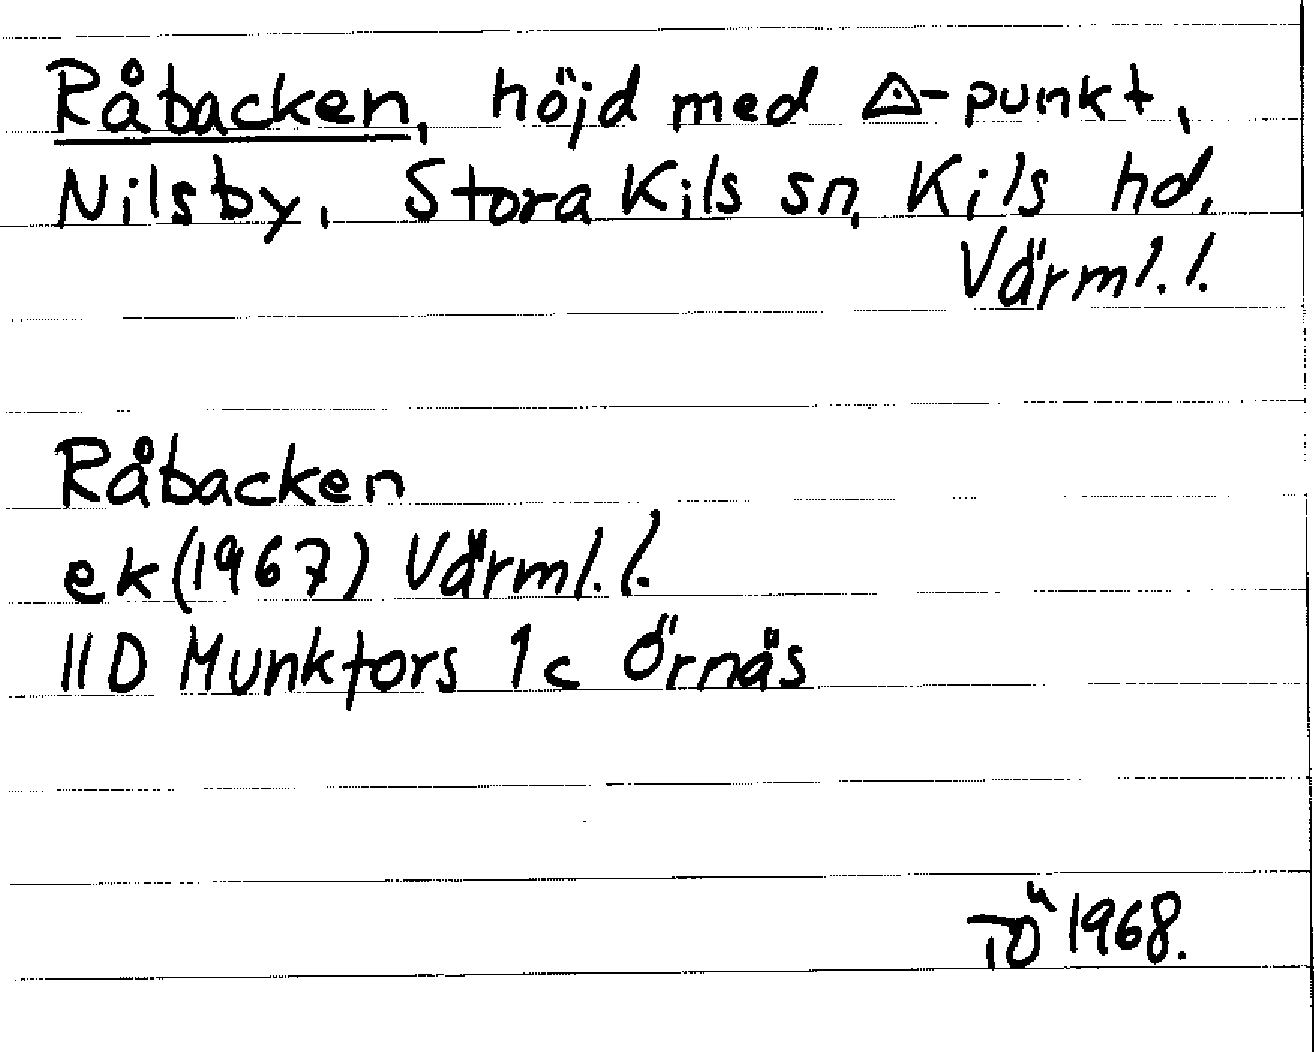 Råbacken, höjd med △-punkt,
Nilsby, Stora Kils sn, Kils hd,
Värml. l.
Råbacken
ek (1967) Värml. l.
11D Munkfors 1c Örnäs
TÖ 1968.